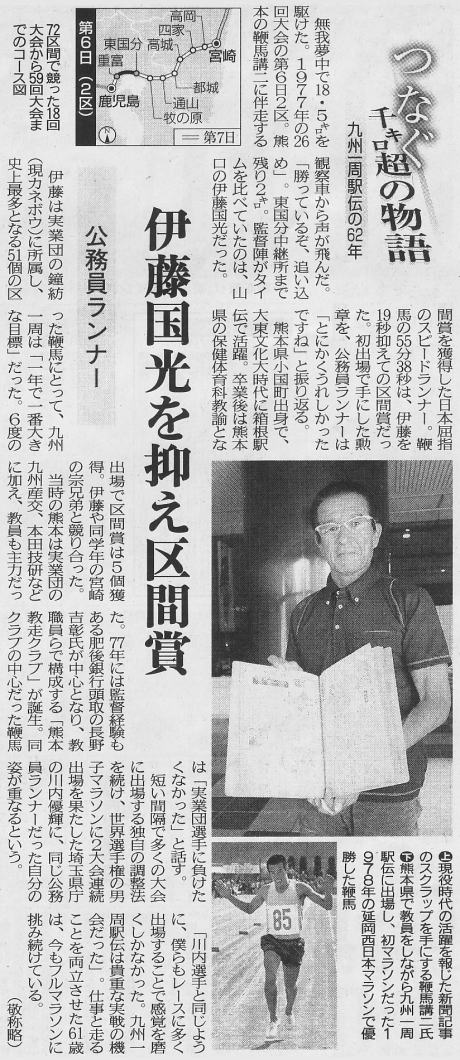 つなぐ
千㌔超の物語
九州一周駅伝の62年
伊藤国光を抑え区間賞
公務員ランナー
無我夢中で18・5㌔を
駆けた。1977年の26
回大会の第6日2区。熊
本の鞭馬講二に伴走する
観察車から声が飛んだ。
「勝っているぞ、追い込
め」。東国分中継所まで
残り2㌔。監督陣がタイ
ムを比べていたのは、山
口の伊藤国光だった。
伊藤は実業団の鐘紡
(現カネボウ)に所属し、
史上最多となる51個の区
間賞を獲得した日本屈指
のスピードランナー。鞭
馬の55分38秒は、伊藤を
19秒抑えての区間賞だっ
た。初出場で手にした勲
章を、公務員ランナーは
「とにかくうれしかった
ですね」と振り返る。
熊本県小国町出身で、
大東文化大時代に箱根駅
伝で活躍。卒業後は熊本
県の保健体育科教諭とな
った鞭馬にとって、九州
一周は「一年で一番大き
な目標」だった。6度の
出場で区間賞は5個獲
得。伊藤や同学年の宮崎
の宗兄弟と競り合った。
当時の熊本は実業団の
九州産交、本田技研など
に加え、教員も主力だっ
た。77年には監督経験も
ある肥後銀行頭取の長野
吉彰氏が中心となり、教
職員らで構成する「熊本
教走クラブ」が誕生。同
クラブの中心だった鞭馬
は「実業団選手に負けた
くなかった」と話す。
短い間隔で多くの大会
に出場する独自の調整法
を続け、世界選手権の男
子マラソンに2大会連続
出場を果たした埼玉県庁
の川内優輝に、同じ公務
員ランナーだった自分の
姿が重なるという。
「川内選手と同じよう
に、僕らもレースに多く
出場することで感覚を磨
くしかなかった。九州一
周駅伝は貴重な実戦の機
会だった」。仕事と走る
ことを両立させた61歳
は、今もフルマラソンに
挑み続けている。
(敬称略)
72区間で競った18回
大会から59回大会ま
でのコース図
第6日(2区)
宮崎
高岡
四家
高城
都城
通山
牧の原
東国分
重富
鹿児島
N
第7日
㊤現役時代の活躍を報じた新聞記事
のスクラップを手にする鞭馬講二氏
㊦熊本県で教員をしながら九州一周
駅伝に出場し、初マラソンだった1
978年の延岡西日本マラソンで優
勝した鞭馬
85